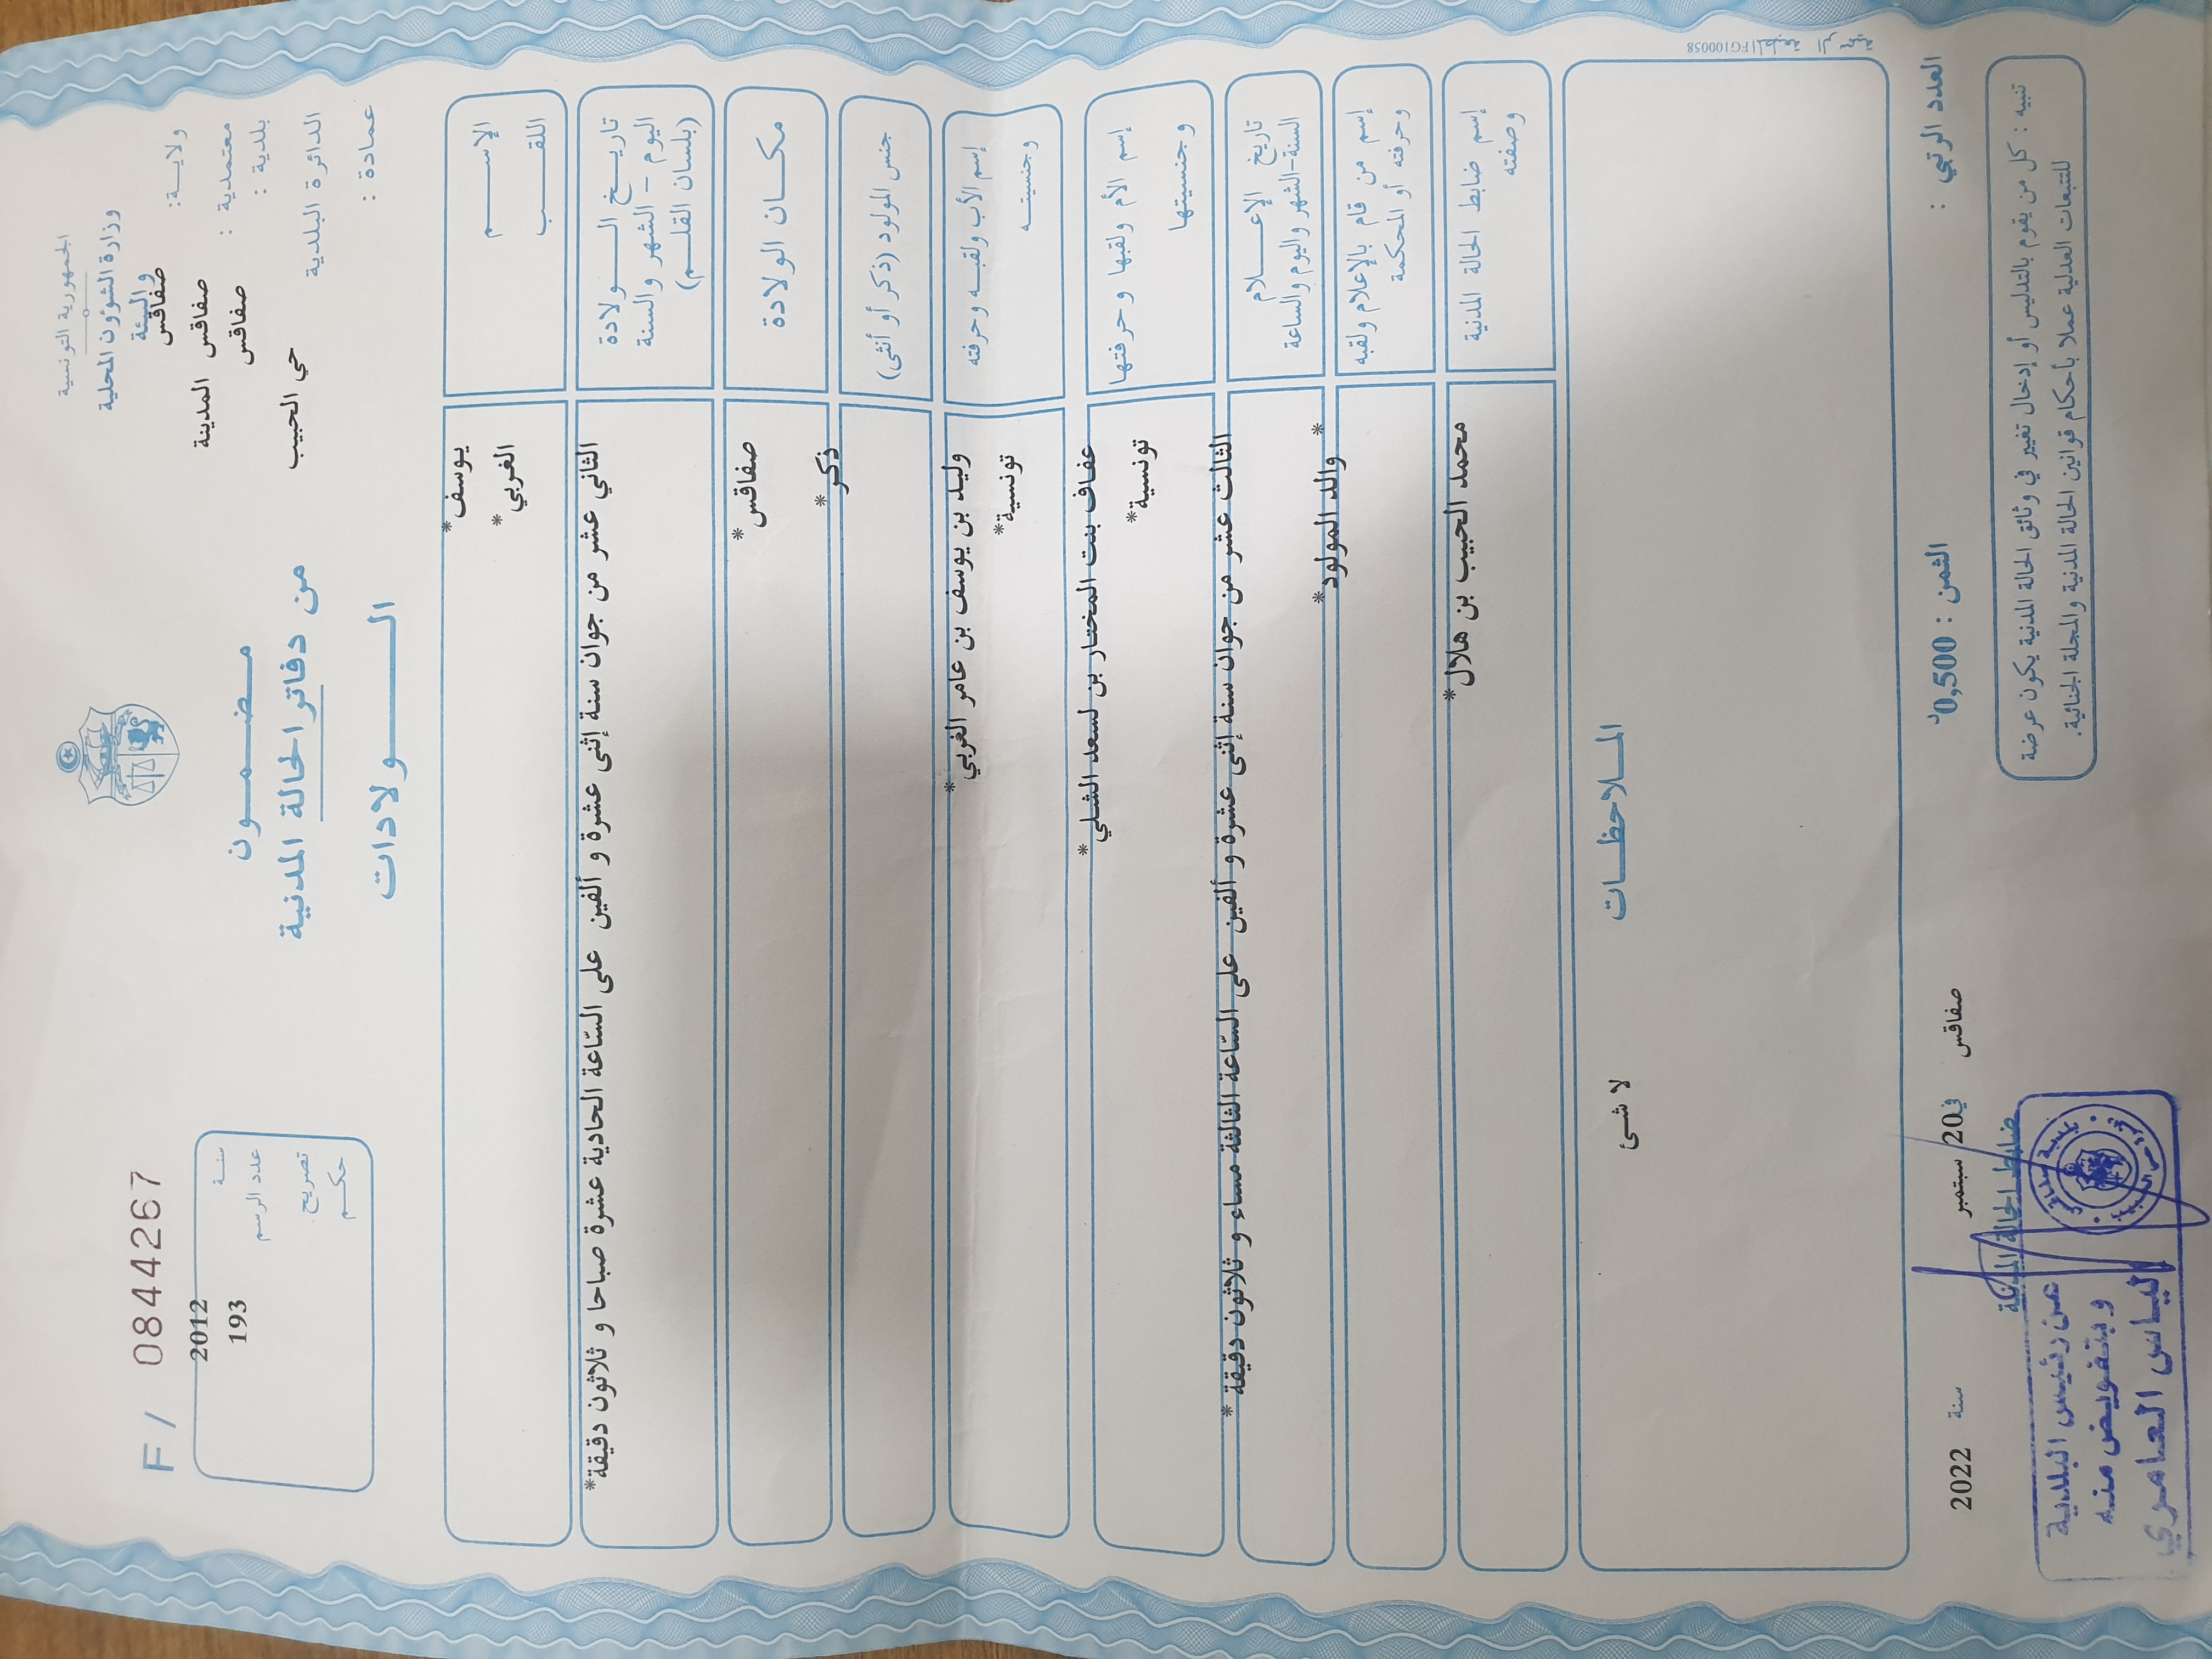 الجمهورية التونسية
وزارة الشؤون المحلية
والبيئة
ولاية: صفاقس
معتمدية : صفاقس المدينة
بلدية : صفاقس
الدائرة البلدية حي الحبيب
عمادة :
مضمون
من دفاتر الحالة المدنية
الولادات
F / 08442​67
سنة 2012
عدد الرسم 193
تصريح
حكم
الإسم يوسف*
اللقب الغربي*
تاريخ الولادة
اليوم - الشهر والسنة
(بلسان القلم)
الثاني عشر من جوان سنة إثنى عشرة و ألفين على السّاعة الحادية عشرة صباحا و ثلاثون دقيقة*
مكان الولادة صفاقس*
جنس المولود (ذكر أو أنثى) ذكر*
إسم الأب ولقبه وحرفته وليد بن يوسف بن عامر الغربي*
وجنسيته تونسية*
إسم الأم ولقبها وحرفتها عفاف بنت المختار بن لسعد الشلي*
وجنسيتها تونسية*
تاريخ الإعلام
السنة-الشهر واليوم والساعة
الثالث عشر من جوان سنة إثنى عشرة و ألفين على السّاعة الثالثة مساء و ثلاثون دقيقة*
إسم من قام بالإعلام ولقبه
وحرفته أو المحكمة
* والد المولود*
إسم ضابط الحالة المدنية
وصفته
محمد الحبيب بن هلال*
الملاحظات
لا شئ
المطبعة الرسمية FG100058
العدد الرتبي :
الثمن : 0,500د
صفاقس في 20 سبتمبر سنة 2022
ضابط الحالة المدنية
تنبيه : كل من يقوم بالتدليس أو إدخال تغيير في وثائق الحالة المدنية يكون عرضة
للتتبعات العدلية عملا بأحكام قوانين الحالة المدنية والمجلة الجنائية.
عن رئيس البلدية
وبتفويض منه
إلياس العامري